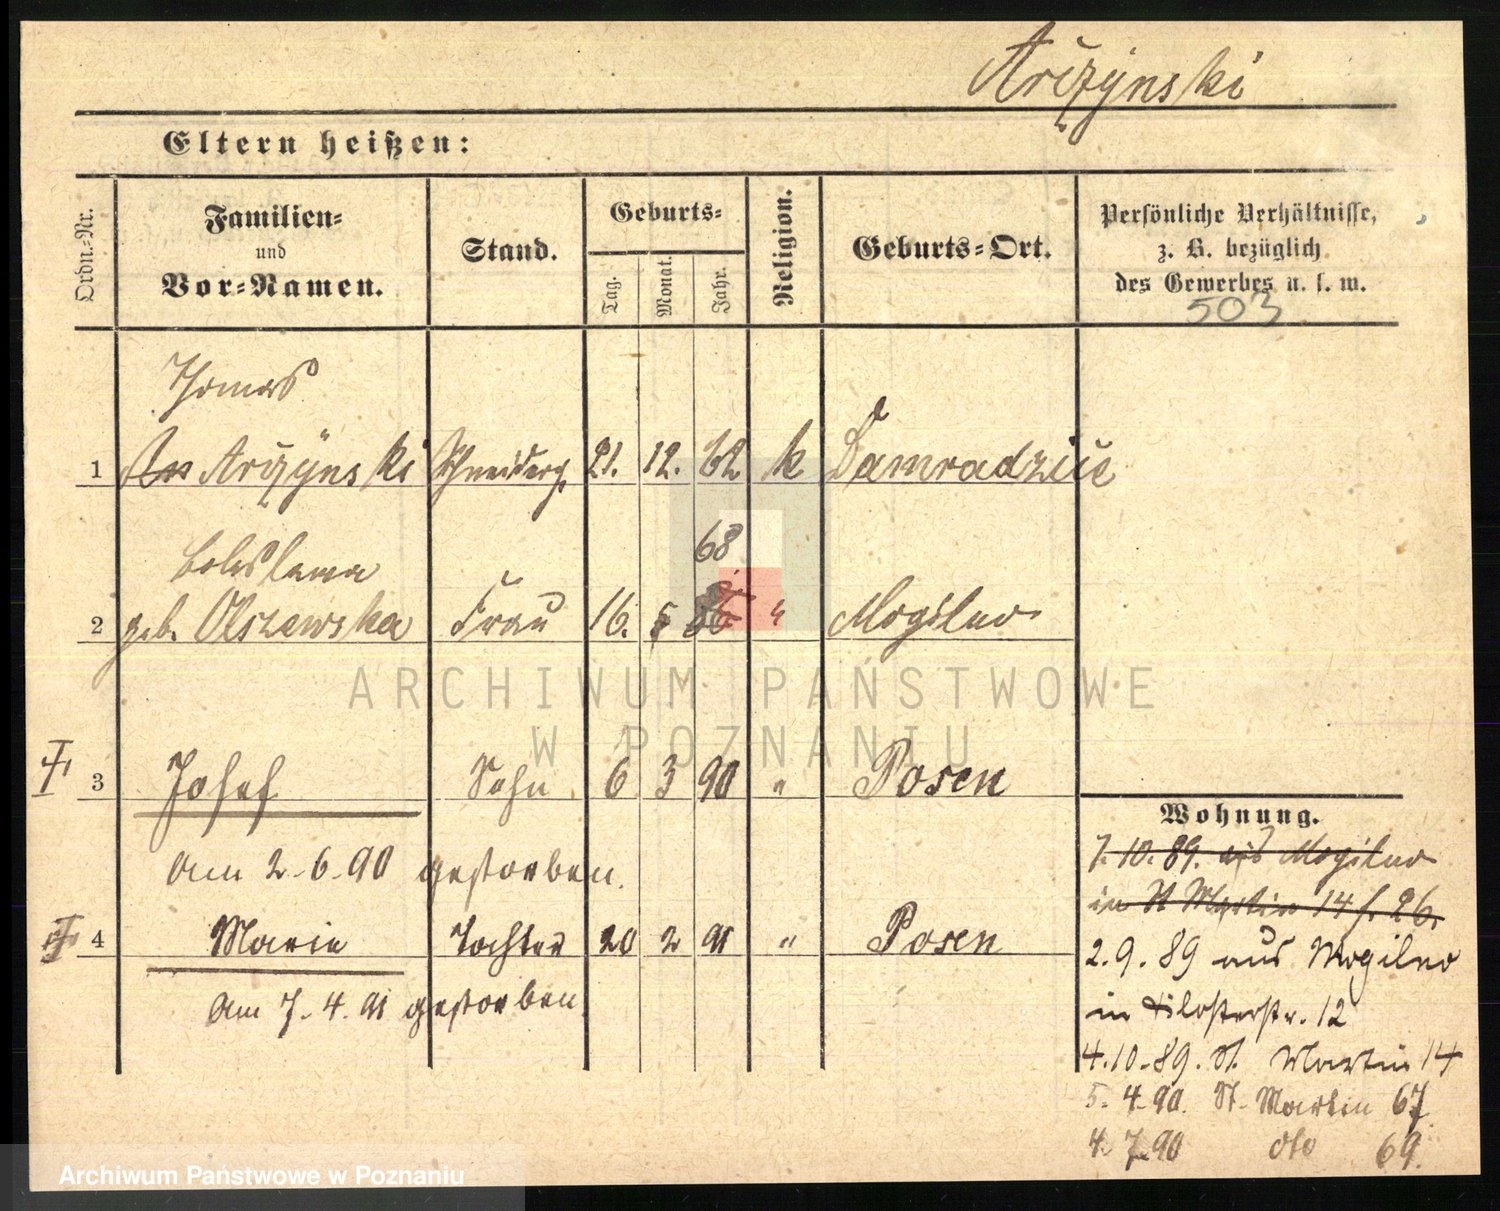 Arčzynski
Eltern heißen:
Ordn.-Nr.
Familien-
und
Vor-Namen.
Stand.
Geburts-
Tag.
Monat.
Jahr.
Religion.
Geburts-Ort.
Persönliche Verhältnisse,
z. B. bezüglich
des Gewerbes u. s. w.
503
Thomas
1 Arčzynski Schneiderg. 21. 12. 62 k Damradzice
68
Boleslawa
2 geb. Olszewska Frau 16. 5 " Mogilno
3 Josef Sohn 6 3 90 " Posen
Am 2-6-90 gestorben.
4 Marie Tochter 20 2 91 " Posen
Am 7-4.91 gestorben.
Wohnung.
7.10.89. aus Mogilno
in St Martin 14 26.
2.9.89 aus Mogilno
in 12
4.10.89. St. Martin 14
5.4.90. St. Martin 67
4.7.90 dto 69.
ARCHIWUM PAŃSTWOWE
W POZNANIU
Archiwum Państwowe w Poznaniu